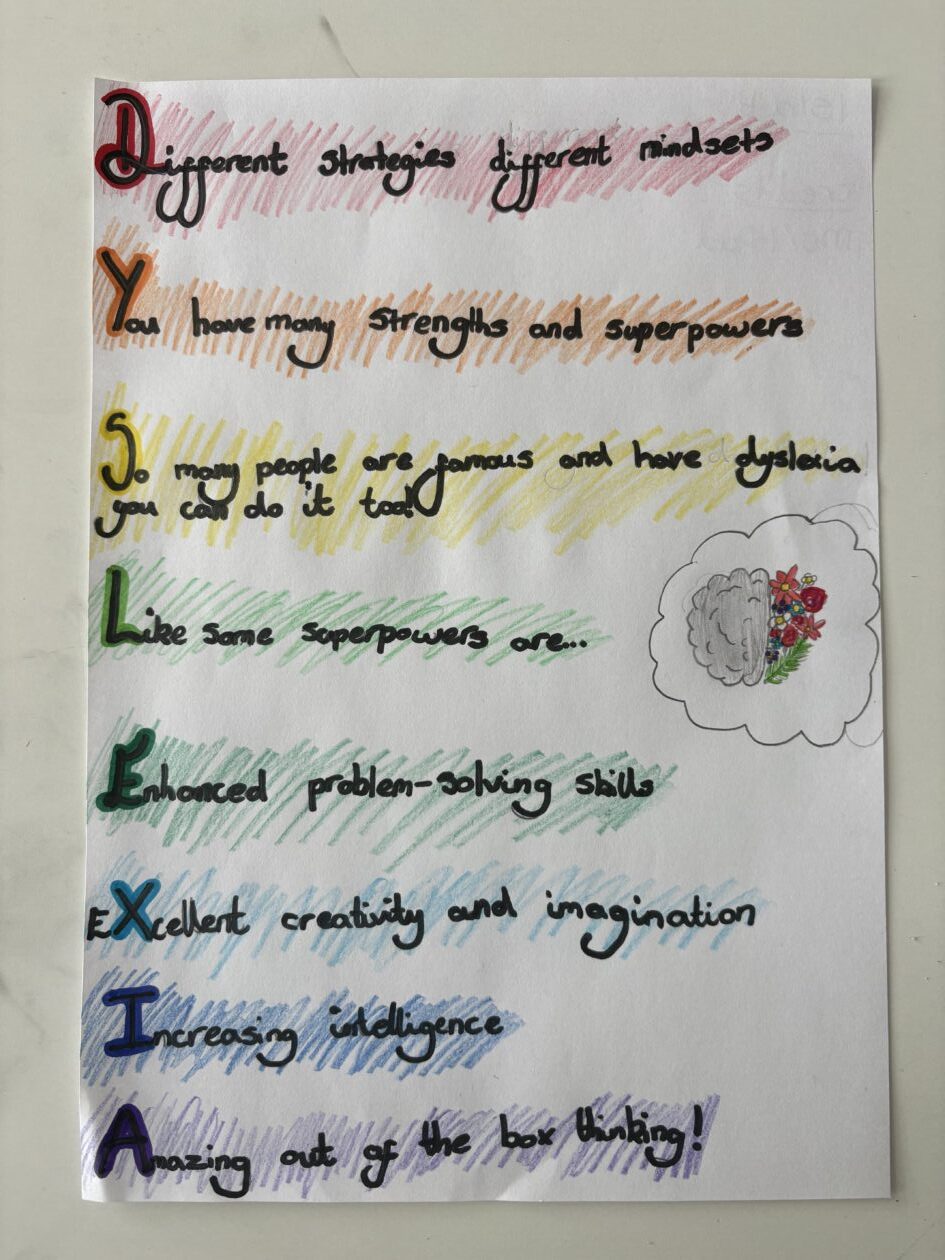 Different strategies different mindsets
You have many strengths and superpowers
So many people are famous and have dyslexia
you can do it too!
Like some superpowers are...
Enhanced problem-solving skills
EXcellent creativity and imagination
Increasing intelligence
Amazing out of the box thinking!